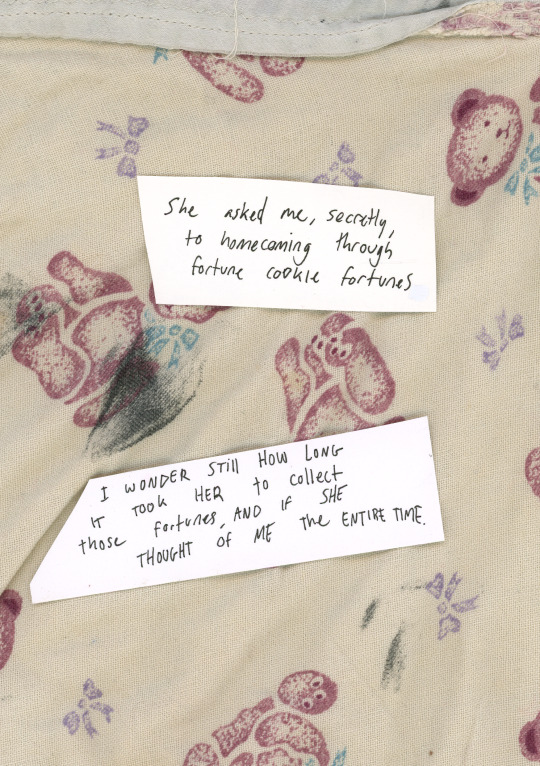 She asked me, secretly,
to homecoming through
fortune cookie fortunes
I WONDER Still HOW LONG
IT TOOK HER to collect
those fortunes, AND IF SHE
THOUGHT OF ME the ENTIRE TIME.